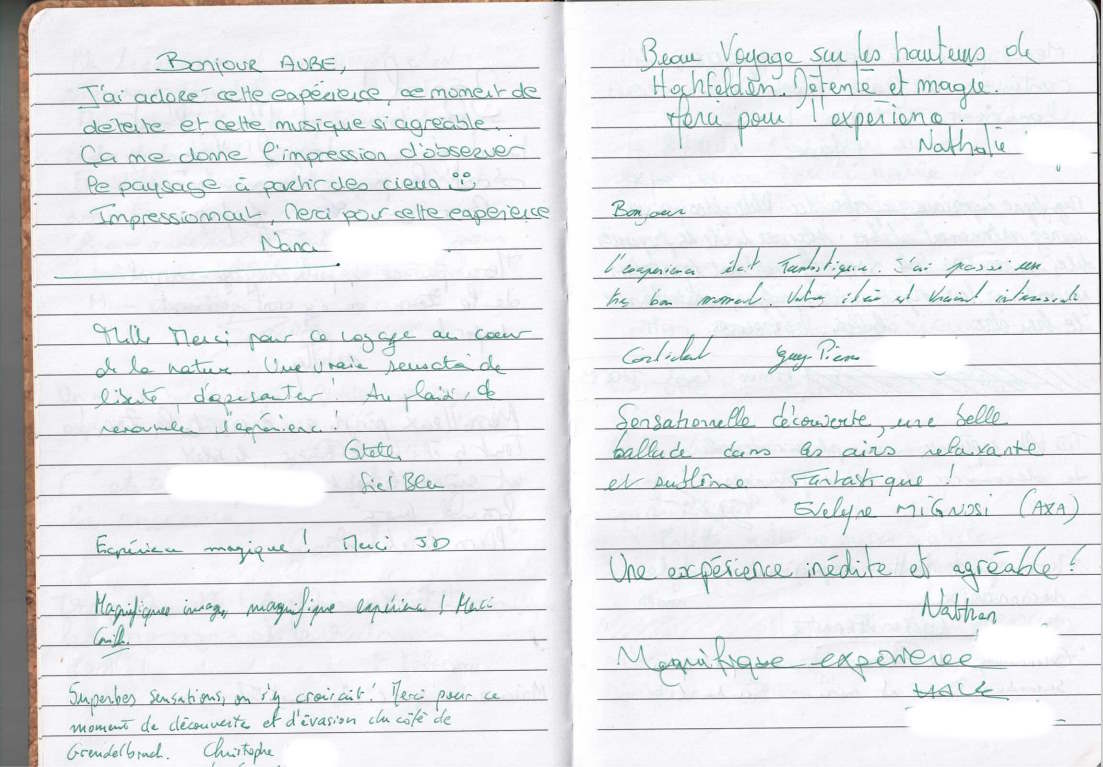 Bonjour AUBE,
J'ai adoré cette expérience, ce moment de
détente et cette musique si agréable.
Ça me donne l'impression d'observer
le paysage à partir des cieux
Impressionnant, Merci pour cette expérience
Nana
Mille Merci pour ce voyage au coeur
de la nature. Une vraie sensation de
liberté d'apesanteur! Au plaisir de
renouveler l'expérience!
Siel Bleu
Expérience magique! Merci JD
Magnifiques images, magnifique expérience! Merci
Camille
Superbes sensations, on s'y croirait! Merci pour ce
moment de découverte et d'évasion du côté de
Grendelbruch. Christophe
Beau Voyage sur les hauteurs de
Hochfelden. Détente et magie.
Merci pour l'expérience.
Nathalie
Bonjour
l'expérience était Fantastique. J'ai passé un
très bon moment. Votre idée est vraiment intéressante
Cordialement Guy-Pierre
Sensationnelle découverte, une belle
ballade dans les airs relaxante
et sublime. Fantastique!
Evelyne MIGNOSI (AXA)
Une expérience inédite et agréable!
Nathan
Magnifique expérience